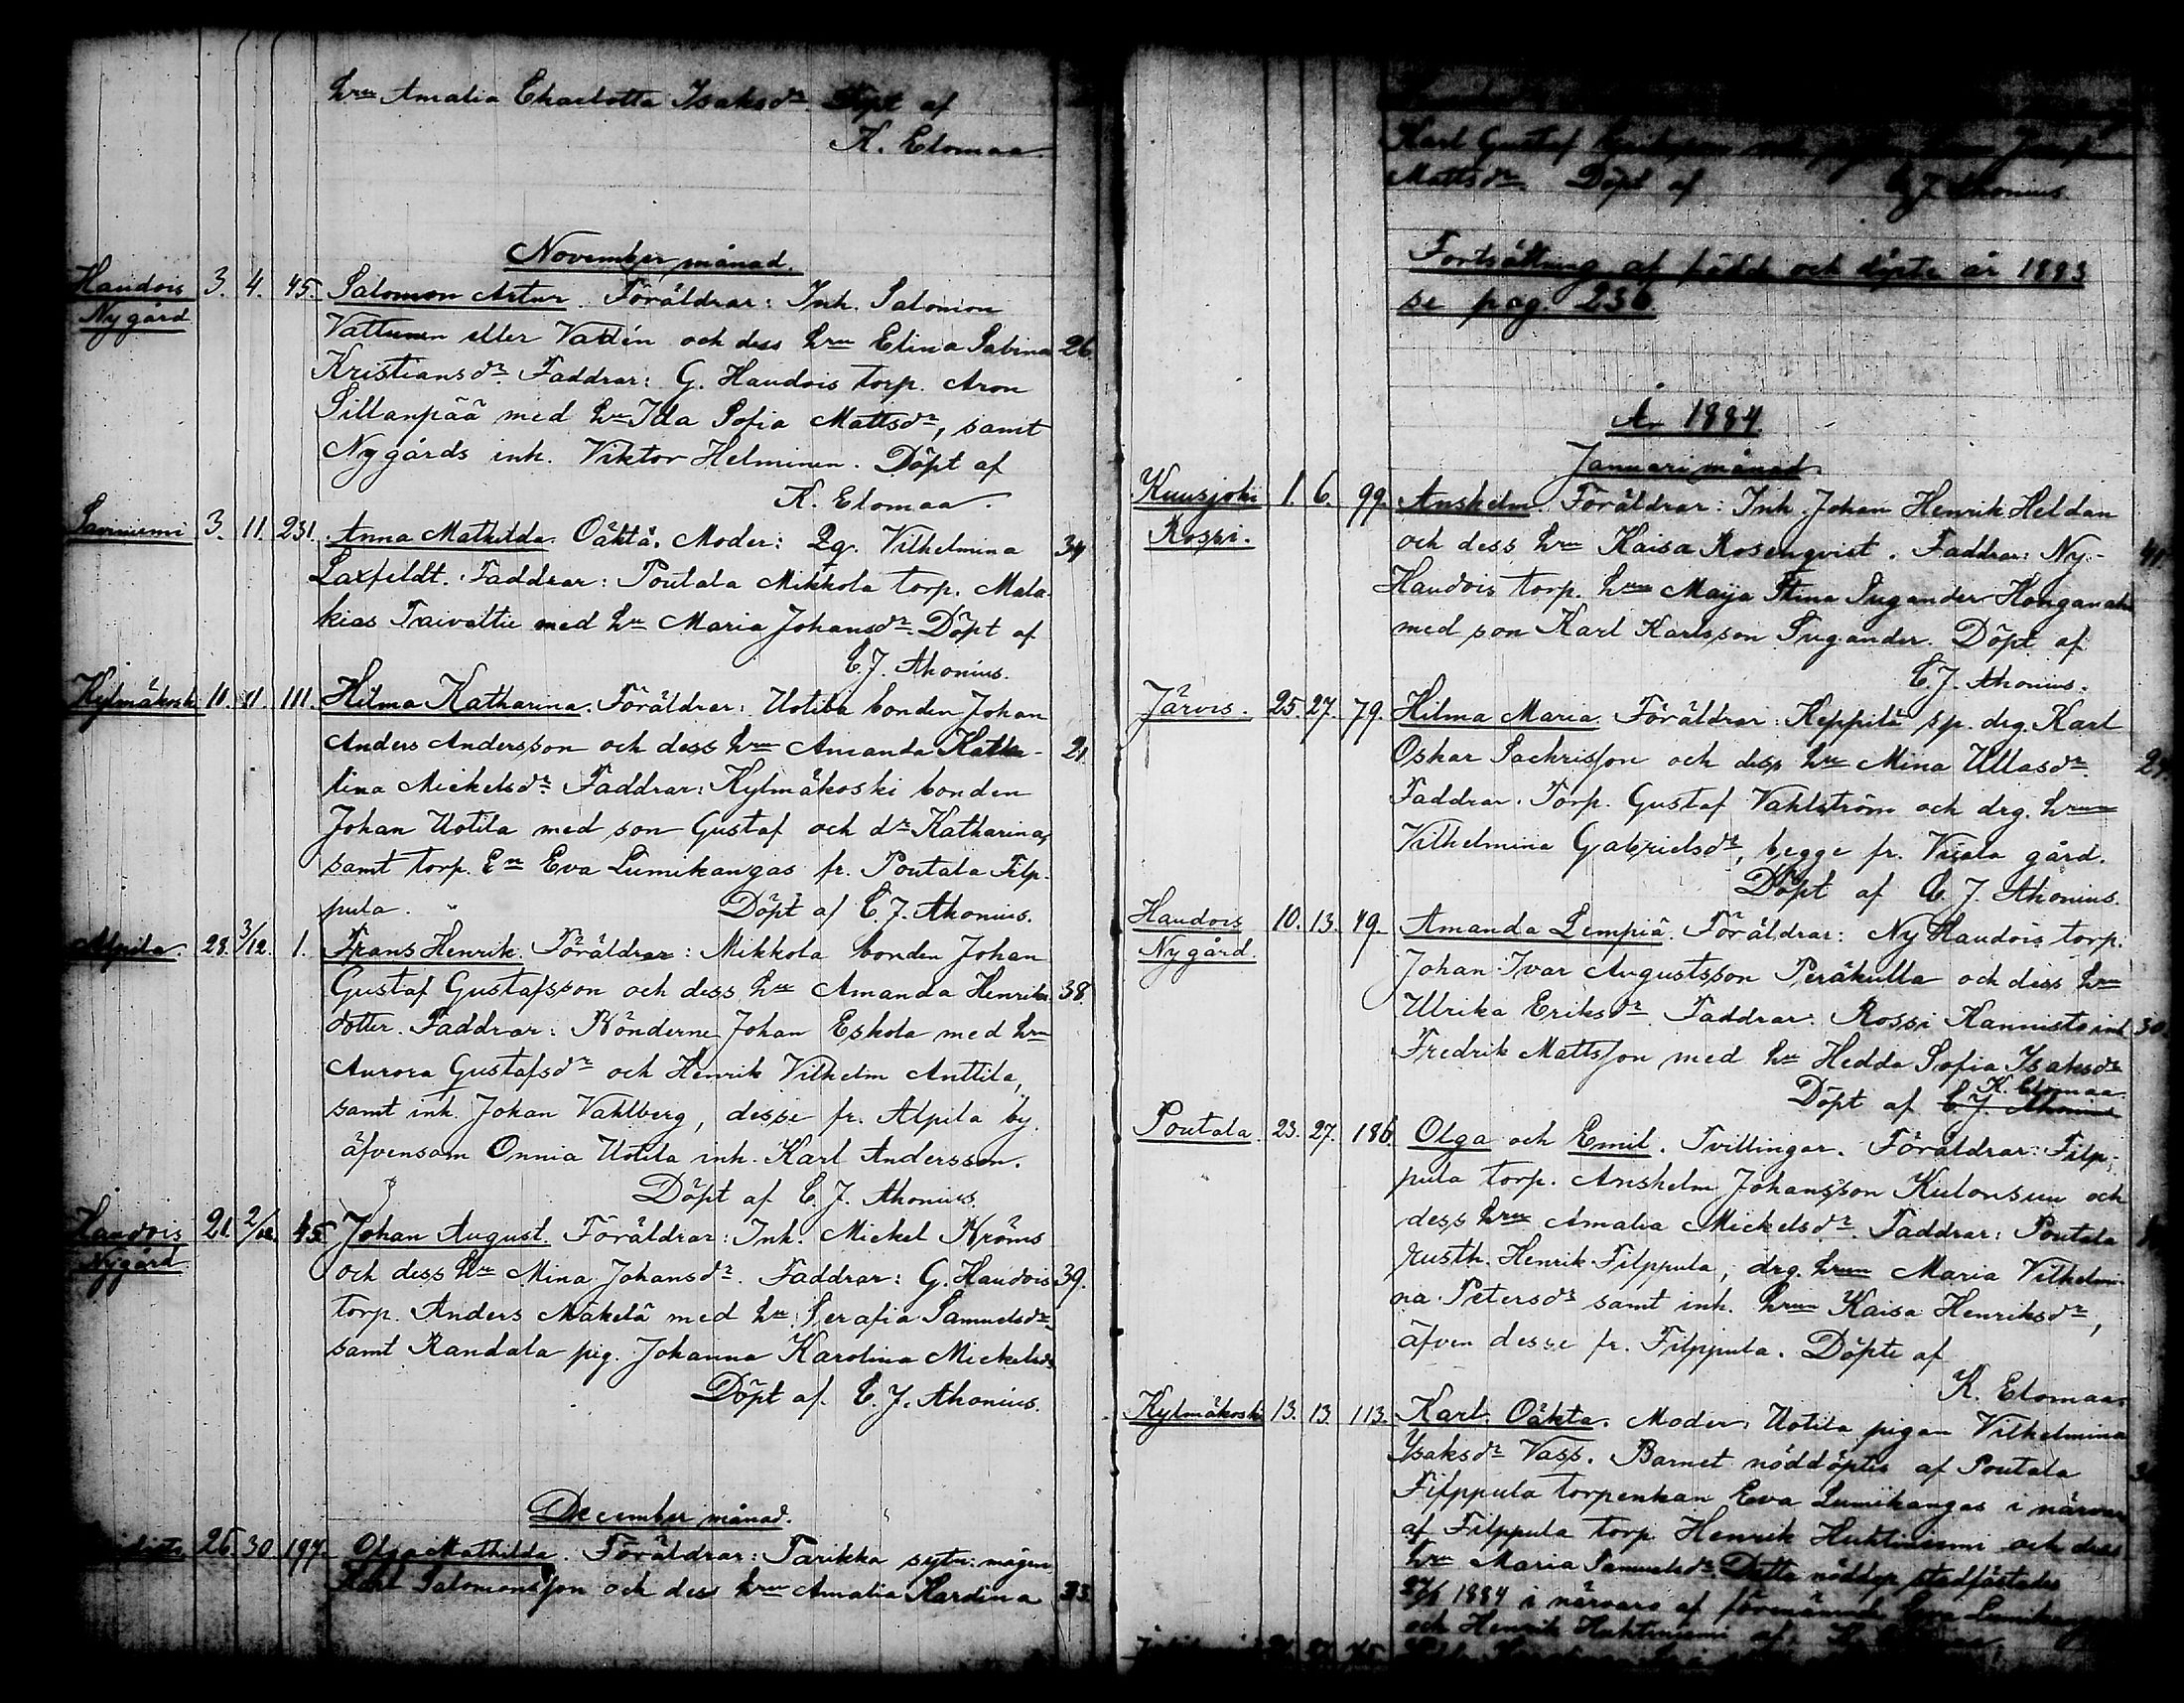 hru Amalia Charlotta Isaksdr. Döpt af
K. Elomaa.
November månad.
Haudois 3. 4. 45. Salomon Artur. Föräldrar: Inh. Salomon
Nygård Vattunen eller Valdén och dess hru Elina Sabina 26
Kristiansdr. Faddrar: G. Haudois torp. Aron
Sillanpää med hu Ida Sofia Mattsdr, samt
Nygårds inh. Viktor Helminen. Döpt af
K. Elomaa.
Savniemi 3. 11. 231. Anna Mathilda. Oäkta. Moder: Qq. Vilhelmina 34
Laxfeldt. Faddrar: Poutala Mikkola torp. Mala-
kias Taivaltie med hu Maria Johansdr. Döpt af
C. J. Ahonius.
Kylmäkoski 10. 11 111. Hilma Katharina. Föräldrar: Uotila bonden Johan
Anders Andersson och dess hru Amanda Katha- 21.
lina Mickelsdr. Faddrar: Kylmäkoski bonden
Johan Uotila med son Gustaf och dr Katharina,
samt torp. En Eva Lumikangas fr. Poutala Filp-
pula. Döpt af C. J. Ahonius.
Alpila. 28. 3/12. 1. Frans Henrik. Föräldrar: Mikkola bonden Johan
Gustaf Gustafsson och dess hru Amanda Henriks- 38.
dotter. Faddrar: Bönderne Johan Eskola med hru
Aurora Gustafsdr och Henrik Vilhelm Anttila,
samt inh. Johan Vahlberg, desse fr. Alpila by
äfvensom Onnia Uotila inh. Karl Andersson.
Döpt af C. J. Ahonius.
Haudois 21. 2/12. 45 Johan August. Föräldrar: Inh. Mickel Kröms
Nygård och dess hru Mina Johansdr. Faddrar: G. Haudois 39.
torp. Anders Mäkelä med hu Serafia Samuelsdr
samt Randala pig. Johanna Karolina Mickelsdr
Döpt af C. J. Ahonius.
December månad.
26. 30 197. Olga Mathilda. Föräldrar: Tarikka sytn: mågen
Karl Salomonsson och dess hru Amalia Kardina 33.
Karl Gustaf
Mattsdr. Döpt af C. J. Ahonius.
Fortsättning af födde och döpte år 1883
se pag. 236.
År 1884
Januari månad
Kuusjoki 1. 6. 99. Anshelm. Föräldrar: Inh. Johan Henrik Heldan
Rospi. och dess hru Kaisa Rosenqvist. Faddrar: Ny- 41.
Haudois torp. hru Maija Stina Sugander Honganalu
med son Karl Karlsson Sugander. Döpt af
C. J. Ahonius.
Järvis. 25. 27. 79. Hilma Maria. Föräldrar: Keppilä sp. drg. Karl
Oskar Sachrisson och dess hru Mina Ullasdr. 27.
Faddrar. Torp. Gustaf Vahlström och drg. hrun
Vilhelmina Gabrielsdr, begge fr. Viiala gård.
Döpt af C. J. Ahonius.
Haudois 10. 13. 49. Amanda Lempiä. Föräldrar: Ny Haudois torp.
Nygård. Johan Ivar Augustsson Peräkulla och dess hru
Ulrika Eriksdr. Faddrar: Rossi Kannisto inh 30.
Fredrik Mattsson med hu Hedda Sofia Isaksdr
K. Elomaa
Döpt af C. J. Ahonius
Poutala 23. 27. 186 Olga och Emil. Tvillingar. Föräldrar: Filp-
pula torp. Anshelm Johansson Kulonsuu och
dess hru Amalia Mickelsdr. Faddrar: Poutala
rusth. Henrik Filppula, drg. hrun Maria Vilhelmi-
na Petersdr samt inh. hrun Kaisa Henriksdr,
äfven desse fr. Filppula. Döpte af
K. Elomaa.
Kylmäkoski 13. 13 113. Karl. Oäkta. Moder: Uotila pigan Vilhelmina
Isaksdr Vass. Barnet nöddöptes af Poutala
Filppula torpenkan Eva Lumikangas i närvar
af Filppula torp Henrik Huhtiniemi och dess
hru Maria Samuelsdr. Detta nöddop stadfästades
27/1 1884 i närvaro af förenämnde Eva Lumikangas
och Henrik Huhtiniemi af